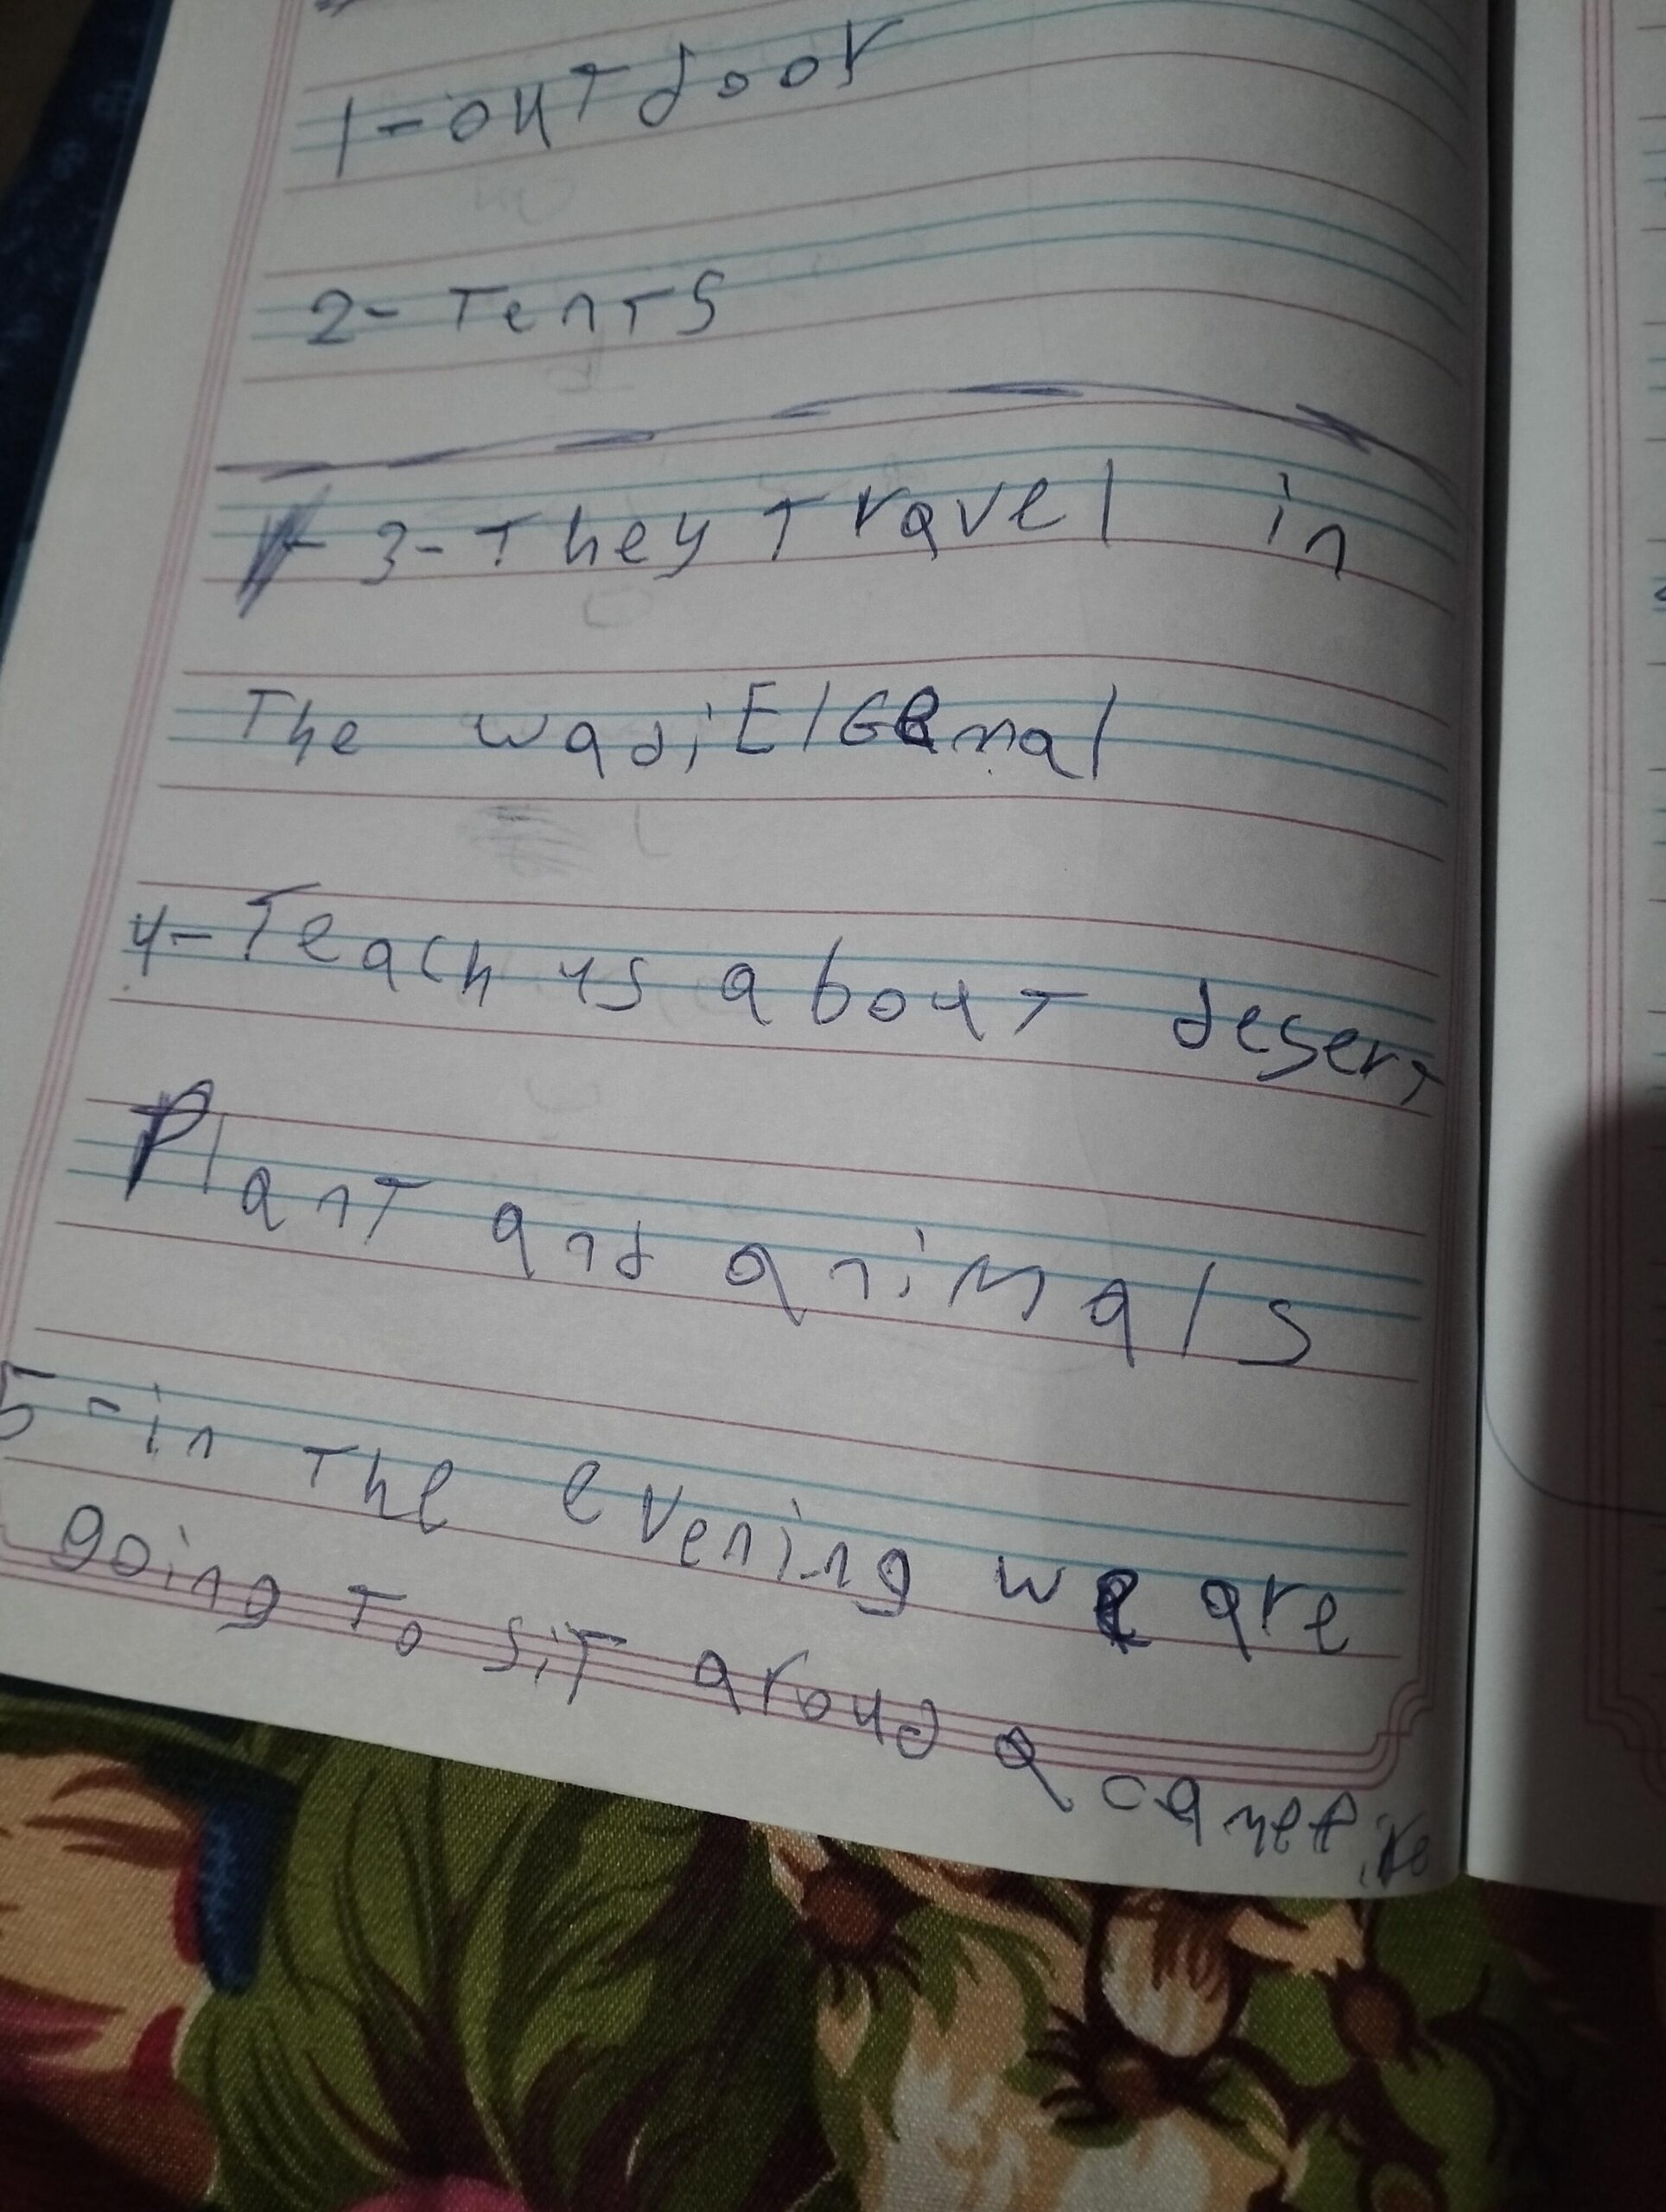 1-outdoor
2-Tents
3-They Travel in
The wadi ElGemal
4-Teach us about desert
Plant and animals
5-in The evening we are
going To sit aroud a